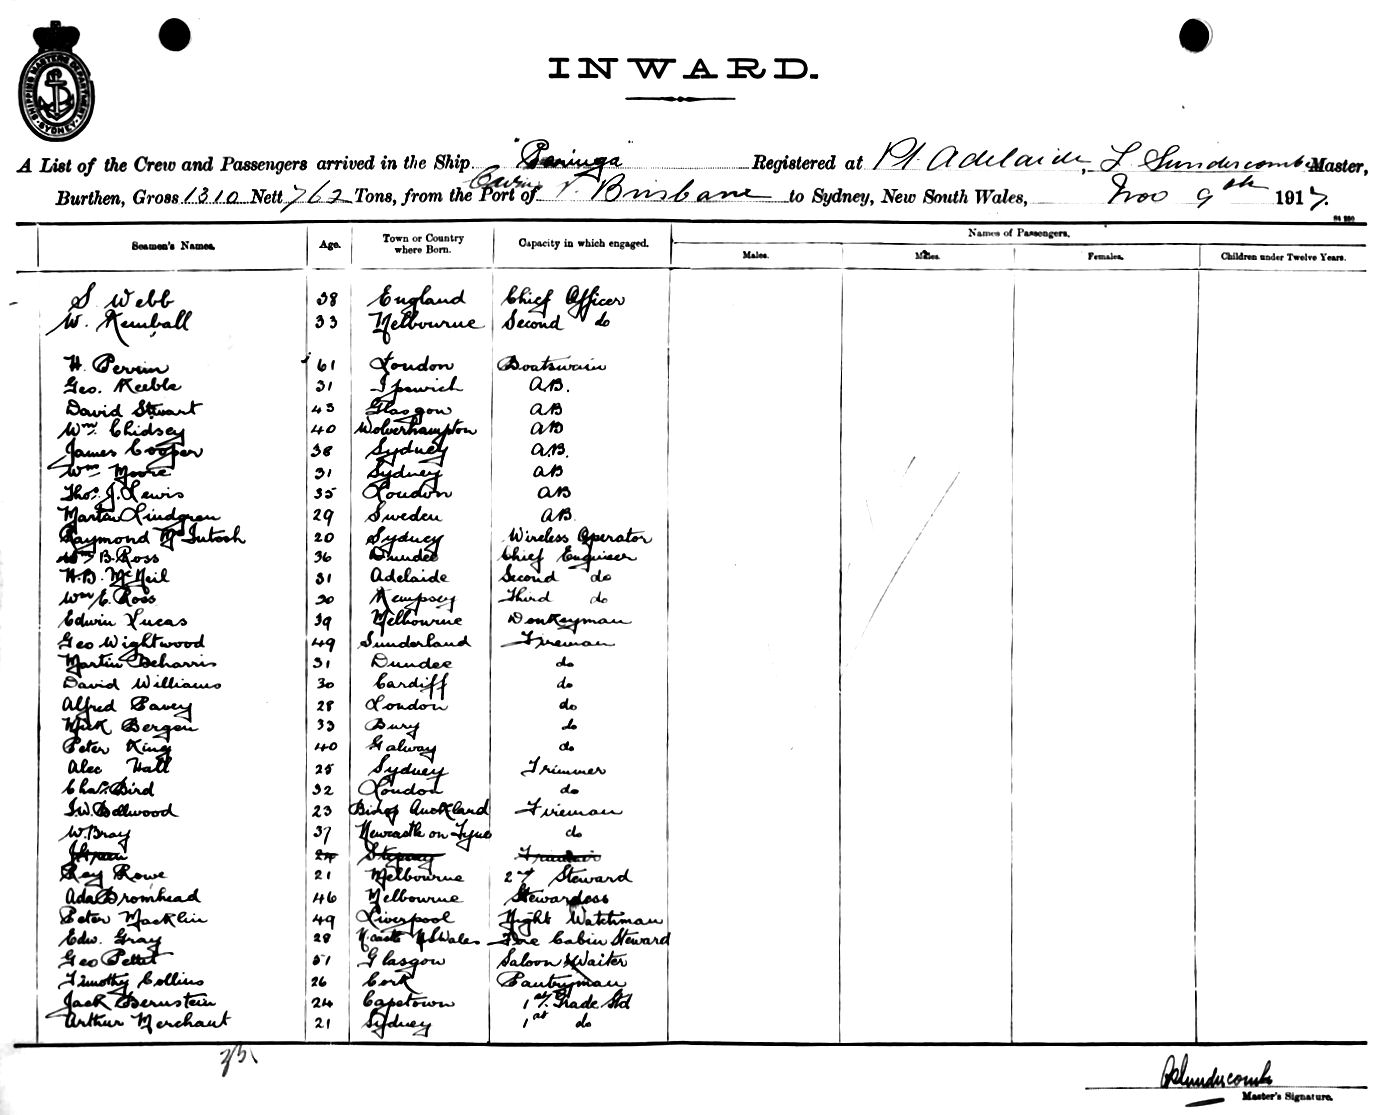 SHIPPING MASTERS DEPARTMENT SYDNEY
INWARD.
A List of the Crew and Passengers arrived in the Ship "Paringa" Registered at Pt. Adelaide, L Sunderscombe Master,
Burthen, Gross 1310 Nett 762 Tons, from the Port of Cairns v. Brisbane to Sydney, New South Wales, Nov 9th 1917.
Seamen's Names. Age. Town or Country where Born. Capacity in which engaged. Names of Passengers.
Males. Males. Females. Children under Twelve Years.
S Webb 38 England Chief Officer
W. Kemball 33 Melbourne Second do
H. Perrin 61 London Boatswain
Geo. Keeble 31 Ipswich A.B.
David Stewart 43 Glasgow AB
Wm. Chidsey 40 Wolverhampton AB
James Cooper 38 Sydney A.B.
Wm Moore 31 Sydney AB
Thos. J. Lewis 35 London AB
Martin Lindgren 29 Sweden AB.
Raymond McIntosh 20 Sydney Wireless Operator
Wm B. Ross 36 Dundee Chief Engineer
H.B. McNeil 31 Adelaide Second do
Wm E. Ross 30 Kempsey Third do
Edwin Lucas 39 Melbourne Donkeyman
Geo Wightwood 49 Sunderland Fireman
Martin Beharris 31 Dundee do
David Williams 30 Cardiff do
Alfred Pavey 28 London do
Mick Bergen 33 Bury do
Peter King 40 Galway do
Alec Hall 25 Sydney Trimmer
Chas. Bird 32 London do
J.W. Bellwood 23 Bishop Auckland Fireman
W. Bray 37 Newcastle on Tyne do
J Green 24 Stepney
Rey Rowe 21 Melbourne 2nd Steward
Ada Bromhead 46 Melbourne Stewardess
Peter Macklin 49 Liverpool Night Watchman
Edw. Gray 28 N.castle NSWales Fore Cabin Steward
Geo Pettet 51 Glasgow Saloon Waiter
Timothy Collins 26 Cork Pantryman
Jack Bernstein 24 Capetown 1st Grade Std
Arthur Merchant 21 Sydney 1st do
Master's Signature.